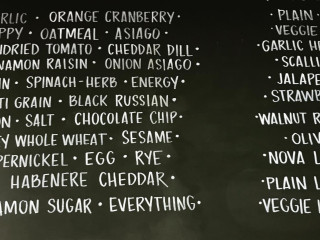 RLIC · ORANGE CRANBERRY·
PPY · OATMEAL · ASIAGO ·
NDRIED TOMATO · CHEDDAR DILL·
NAMON RAISIN · ONION ASIAGO ·
IN · SPINACH-HERB · ENERGY·
TI GRAIN · BLACK RUSSIAN·
ON · SALT · CHOCOLATE CHIP·
TY WHOLE WHEAT · SESAME·
PERNICKEL · EGG · RYE·
HABENERE CHEDDAR·
AMON SUGAR · EVERYTHING·
·PLAIN·
·VEGGIE
·GARLIC HE
·SCALLI
·JALAPE
·STRAWB
·WALNUT R
·OLIV
·NOVA L
·PLAIN L
·VEGGIE